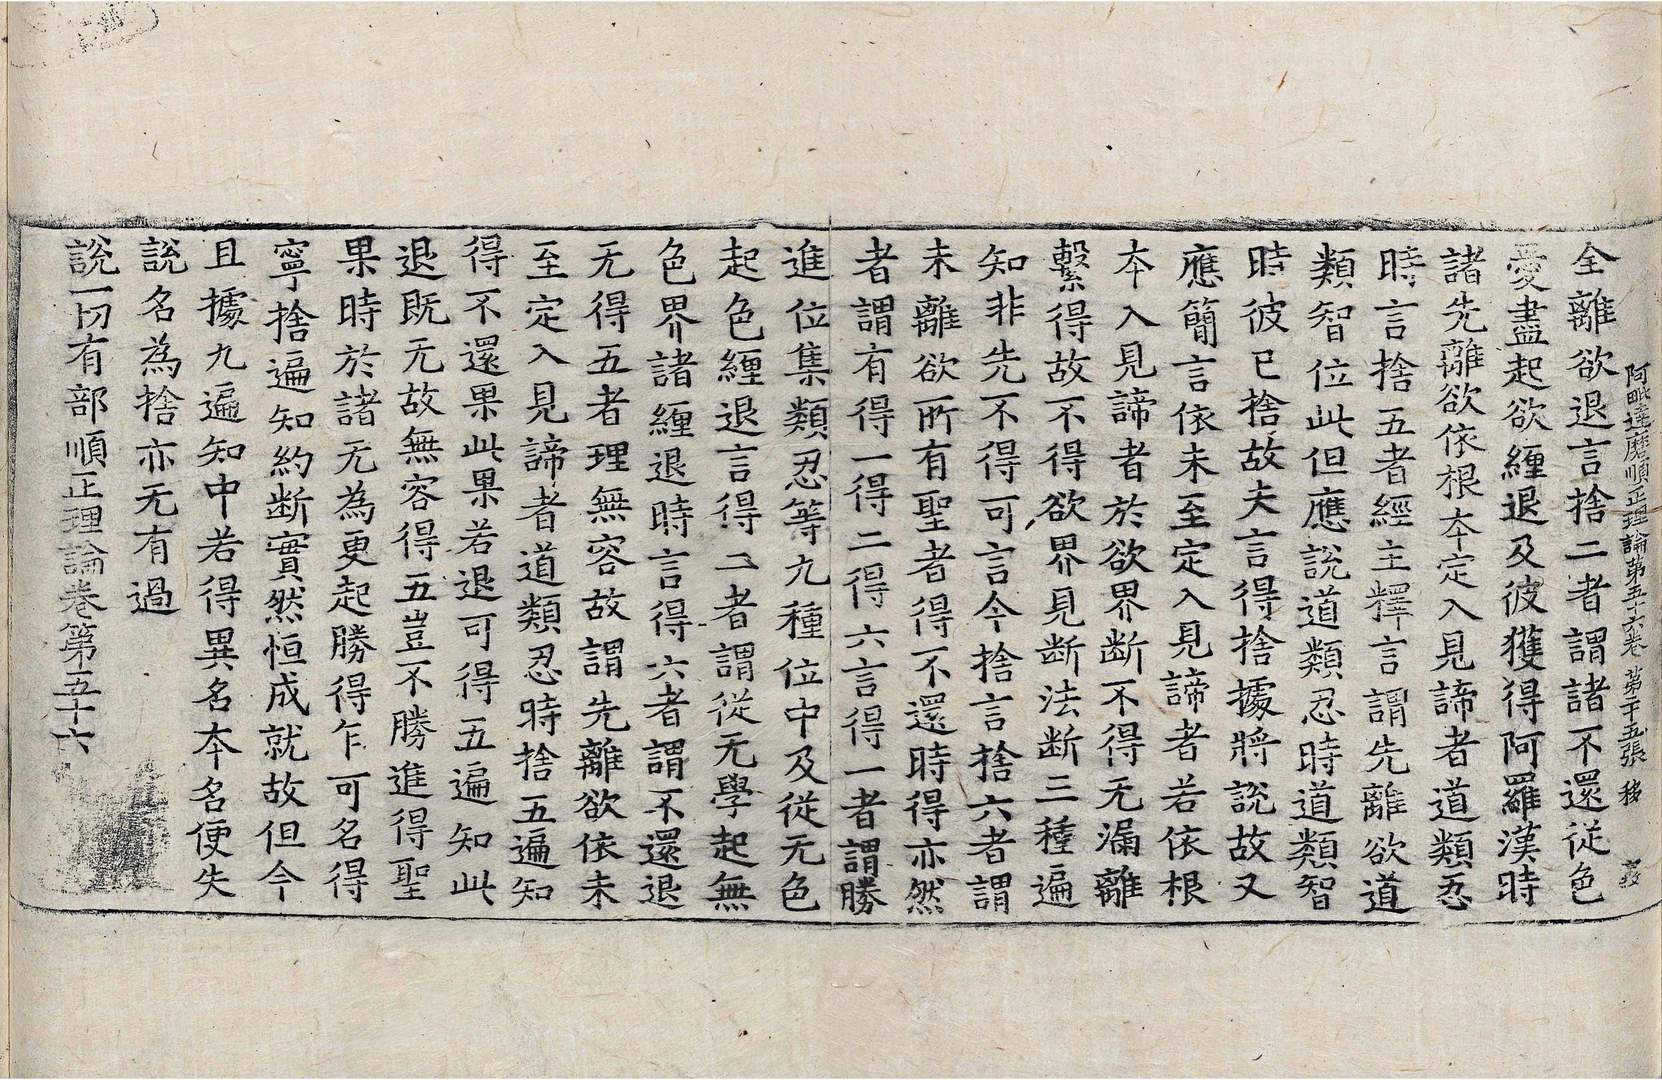 阿毗達磨順正理論第五十六卷 第二十五張 移
全離欲退言捨二者謂諸不還從色
愛盡起欲纏退及彼獲得阿羅漢時
諸先離欲依根本定入見諦者道類忍
時言捨五者經主釋言謂先離欲道
類智位此但應說道類忍時道類智
時彼已捨故夫言得捨據將說故又
應簡言依未至定入見諦者若依根
本入見諦者於欲界斷不得无漏離
繫得故不得欲界見斷法斷三種遍
知非先不得可言今捨言捨六者謂
未離欲所有聖者得不還時得亦然
者謂有得一得二得六言得一者謂勝
進位集類忍等九種位中及從无色
起色纏退言得二者謂從无學起無
色界諸纏退時言得六者謂不還退
无得五者理無容故謂先離欲依未
至定入見諦者道類忍時捨五遍知
得不還果此果若退可得五遍知此
退既无故無容得五豈不勝進得聖
果時於諸无為更起勝得乍可名得
寧捨遍知約斷實然恒成就故但今
且據九遍知中若得異名本名便失
說名為捨亦无有過
說一切有部順正理論卷第五十六